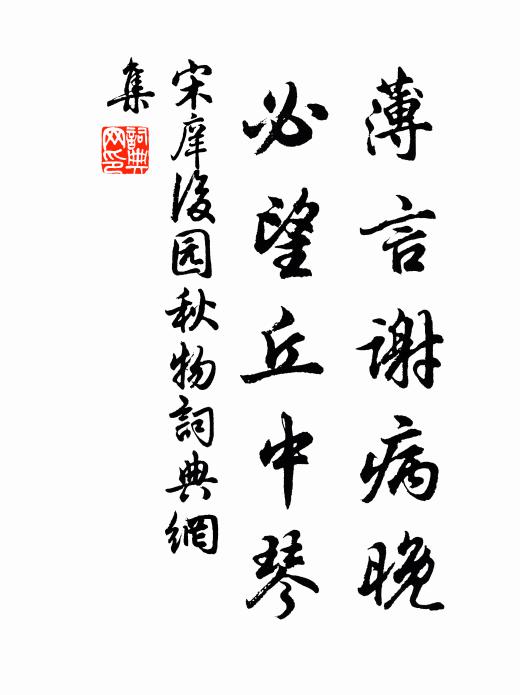 薄言謝病晚
必望丘中琴
宋庠後园秋物詞典網
集
詞典網印